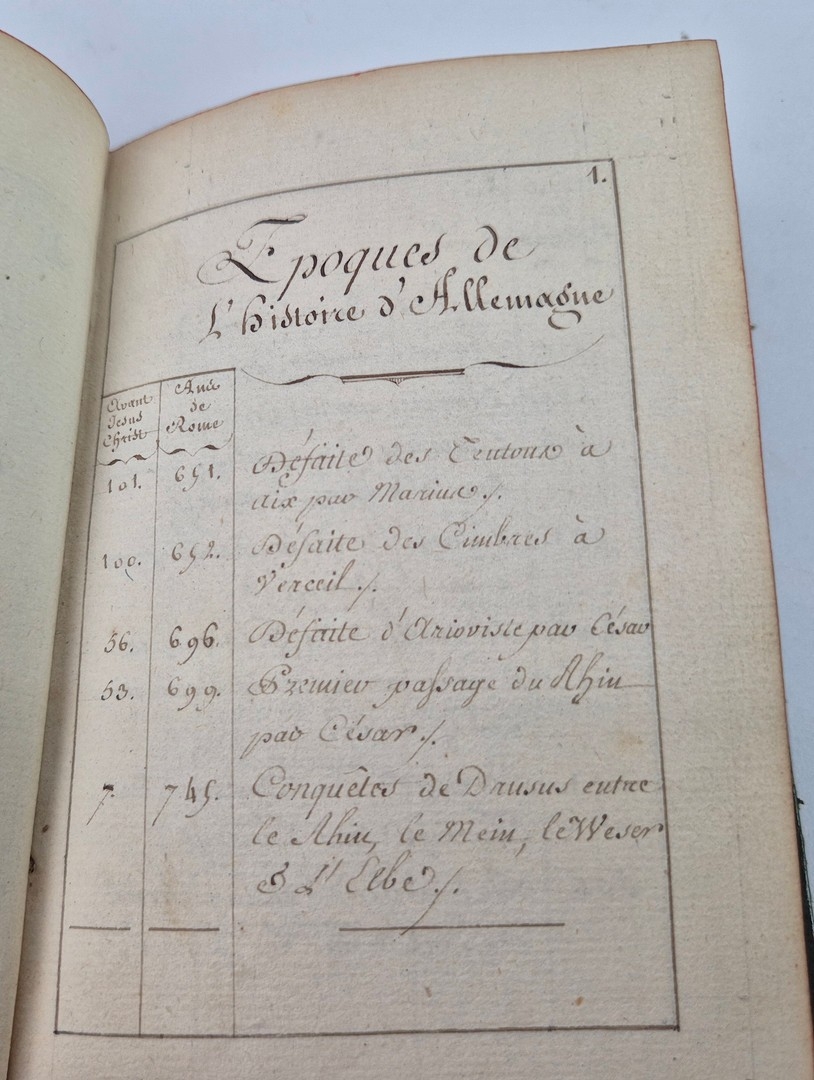 1.
Epoques de
L'histoire d'Allemagne
Avant
Jesus
Christ
Année
de
Rome
101. 651. Défaite des Teutons à
aix par Marius /.
100. 652. Défaite des Cimbres à
Verceil /.
56. 696. Défaite d'Arioviste par César
53. 699. Premier passage du Rhin
par César /.
7. 745. Conquêtes de Drusus entre
le Rhin, le Mein, le Weser
& L'Elbe /.